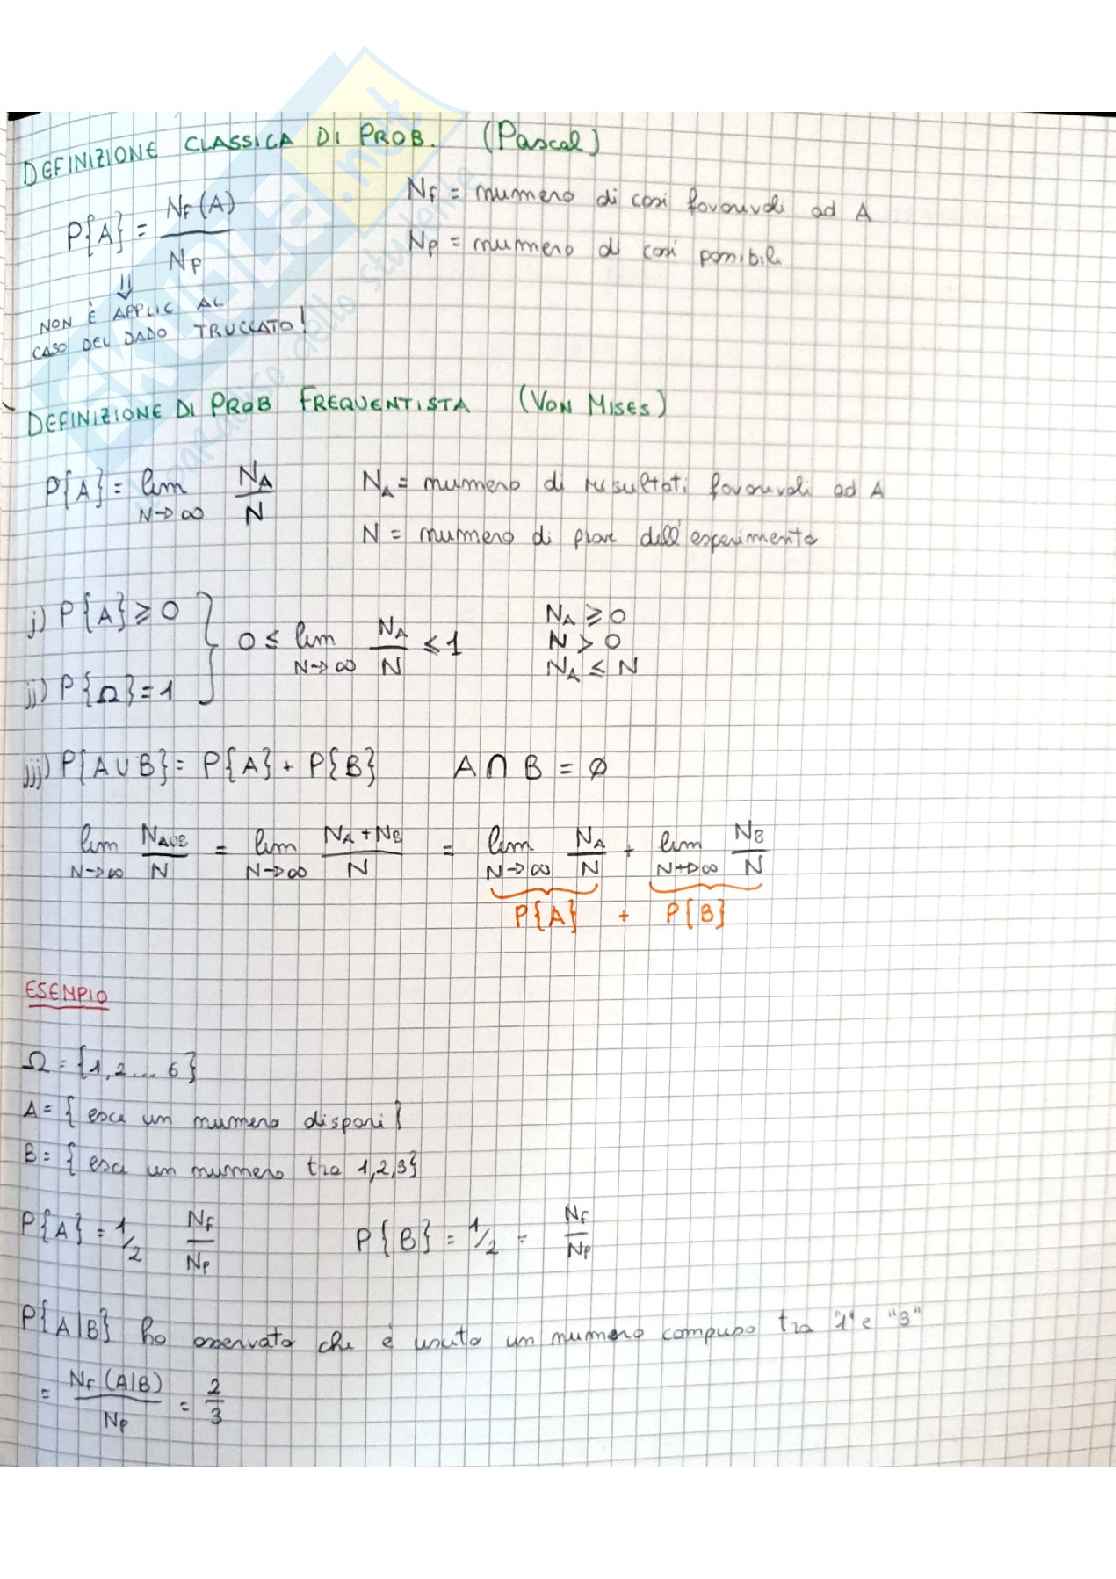 DEFINIZIONE CLASSICA DI PROB. (Pascal)
P{A} = NF(A) / NP
NF = numero di casi favorevoli ad A
NP = numero di casi possibili
⇓
NON È APPLIC AL
CASO DEL DADO TRUCCATO!
DEFINIZIONE DI PROB FREQUENTISTA (VON MISES)
P{A} = lim N→∞ NA / N
NA = numero di risultati favorevoli ad A
N = numero di prove dell'esperimento
j) P{A} ≥ 0
jj) P{Ω} = 1
0 ≤ lim N→∞ NA / N ≤ 1
NA ≥ 0
N > 0
NA ≤ N
jjj) P{A∪B} = P{A} + P{B} A ∩ B = ∅
lim N→∞ NA∪B / N = lim N→∞ NA + NB / N = lim N→∞ NA / N + lim N→∞ NB / N
P{A} + P{B}
ESEMPIO
Ω = {1, 2 ... 6}
A = { esce un numero dispari}
B = { esce un numero tra 1,2,3}
P{A} = 1/2 NF / NP P{B} = 1/2 = NF / NP
P{A|B} ho osservato che è uscito un numero compreso tra "1" e "3"
= NF (A|B) / NP = 2/3
SKUOLA.net